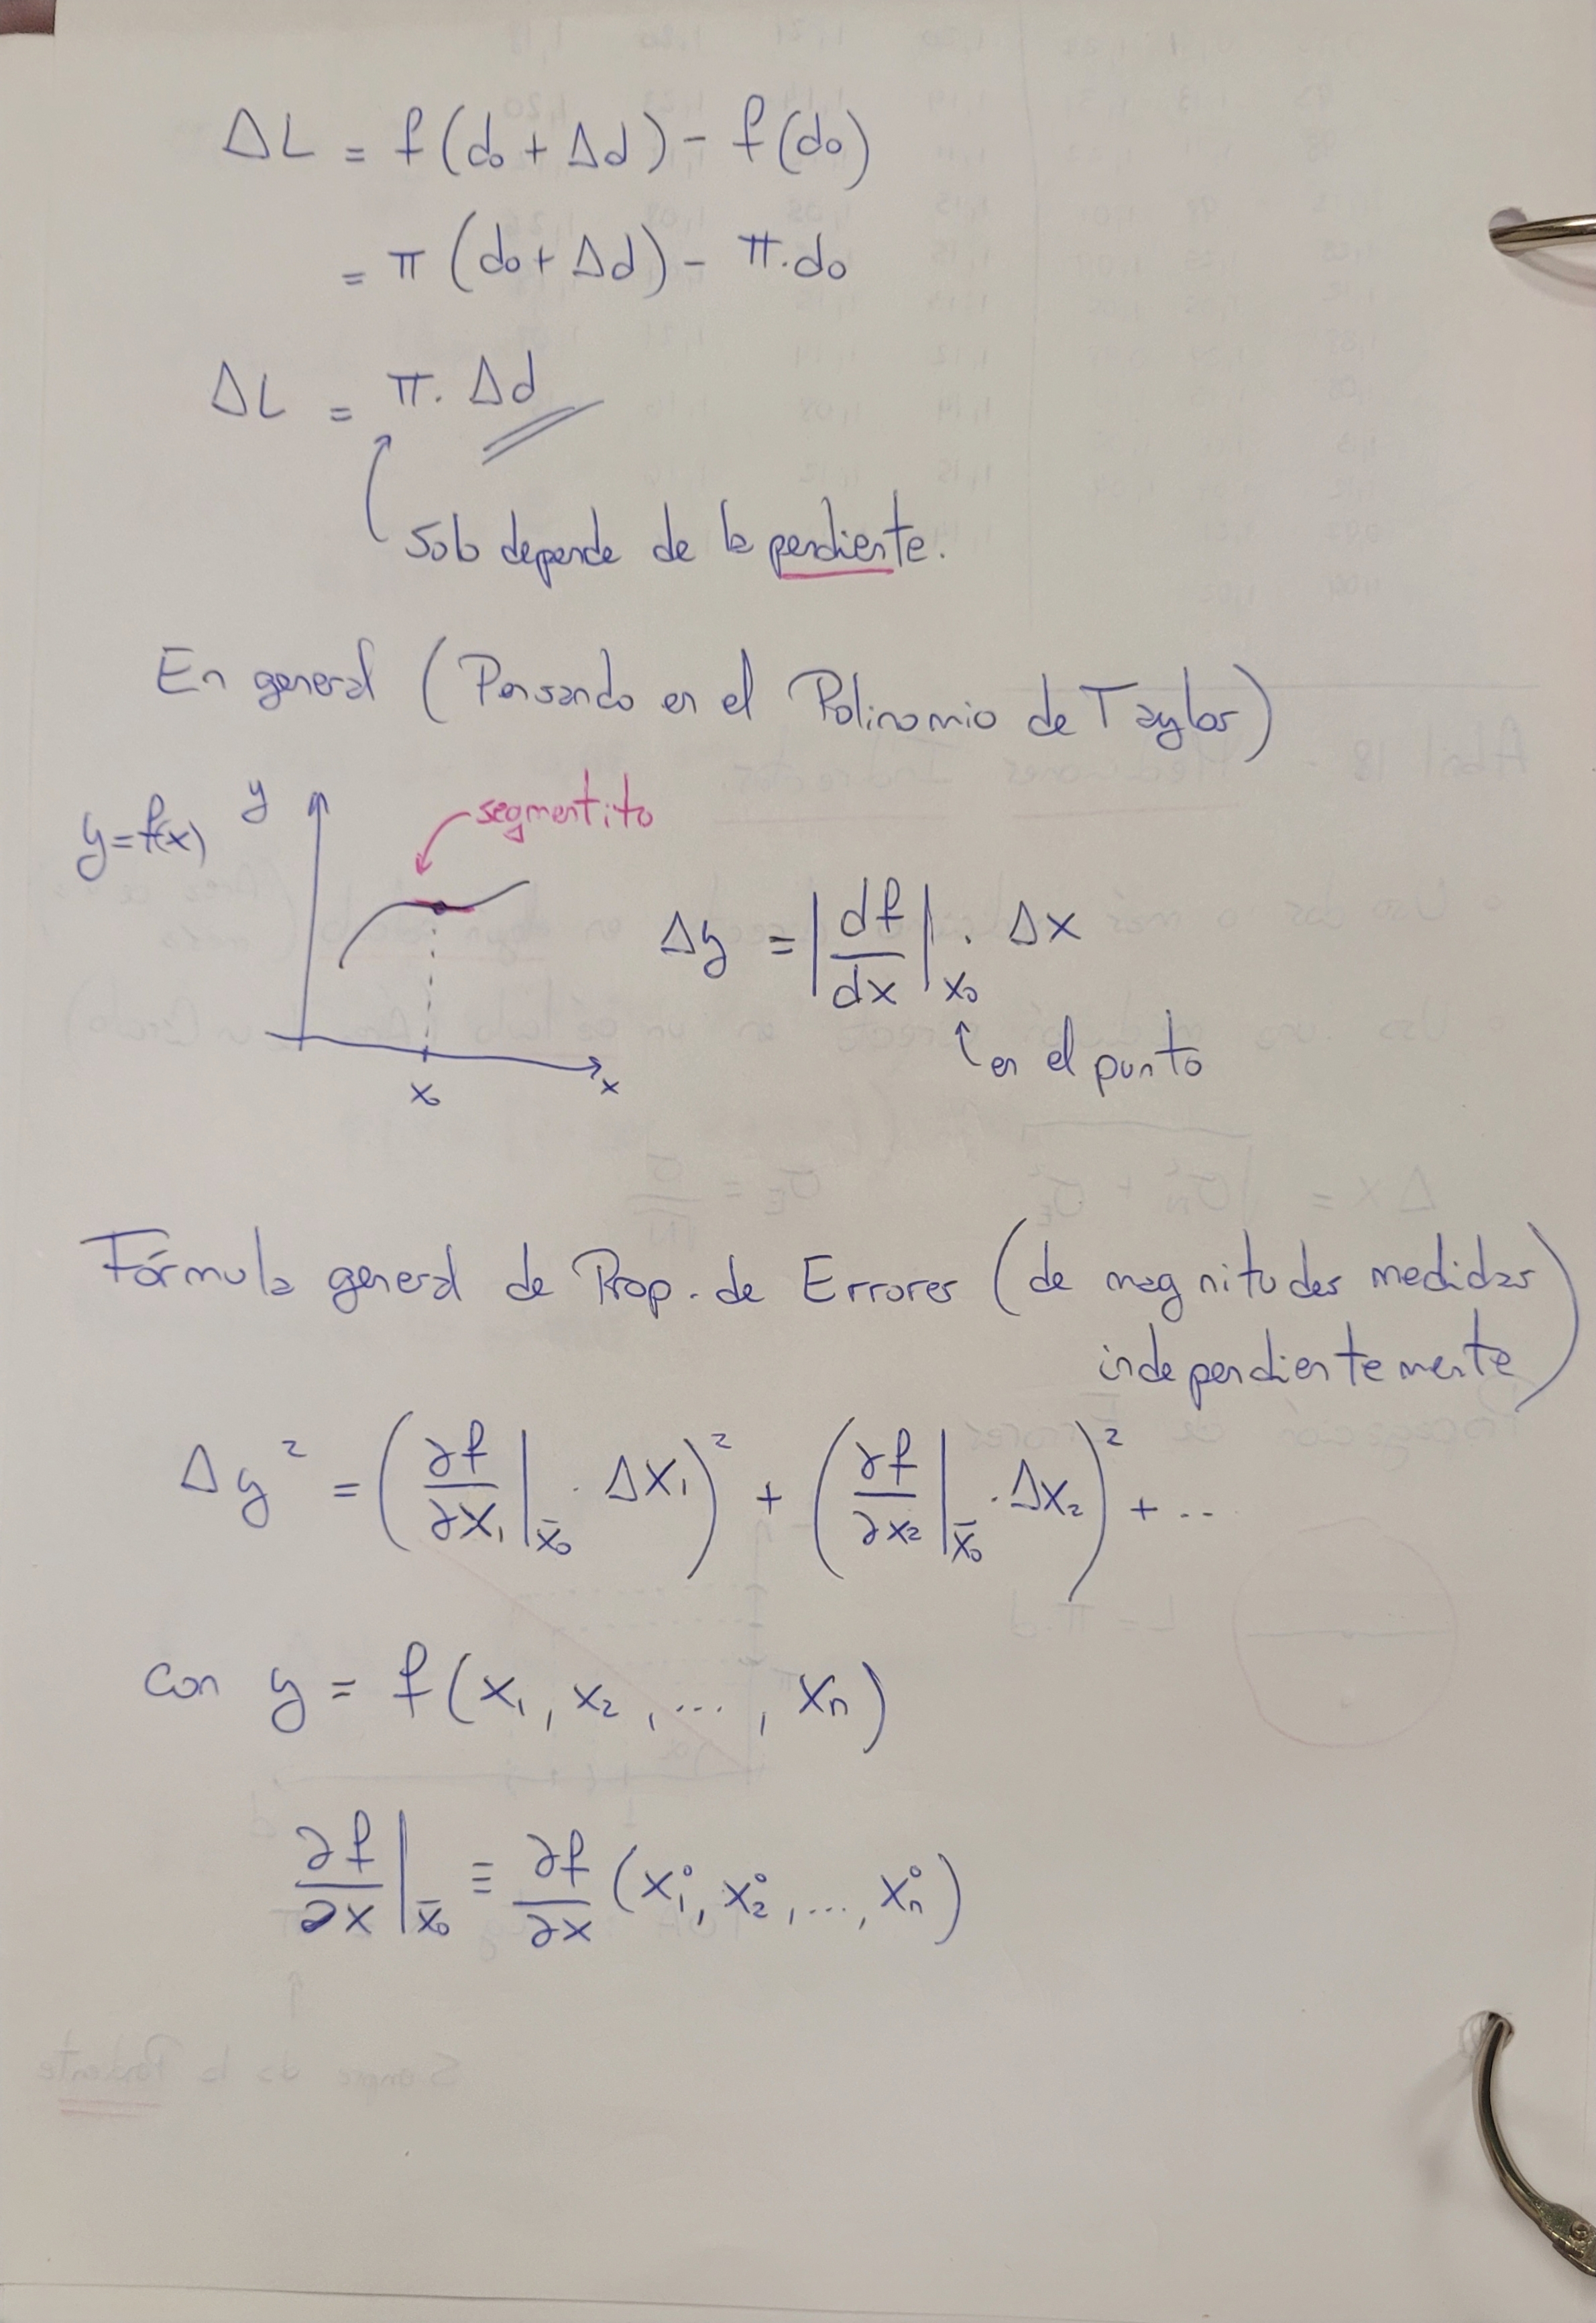 ΔL = f(d₀ + Δd) - f(d₀)
= π (d₀ + Δd) - π·d₀
ΔL = π · Δd
Solo depende de la pendiente.
En general (Pensando en el Polinomio de Taylor)
y=f(x) y segmentito
Δy = |df/dx|x₀ · Δx
en el punto
x₀ x
Fórmula general de Prop. de Errores (de magnitudes medidas
independientemente)
Δy² = (∂f/∂x₁|x̄₀ · Δx₁)² + (∂f/∂x₂|x̄₀ · Δx₂)² + ...
con y = f(x₁, x₂, ..., xₙ)
∂f/∂x|x̄₀ ≡ ∂f/∂x (x₁⁰, x₂⁰, ..., xₙ⁰)